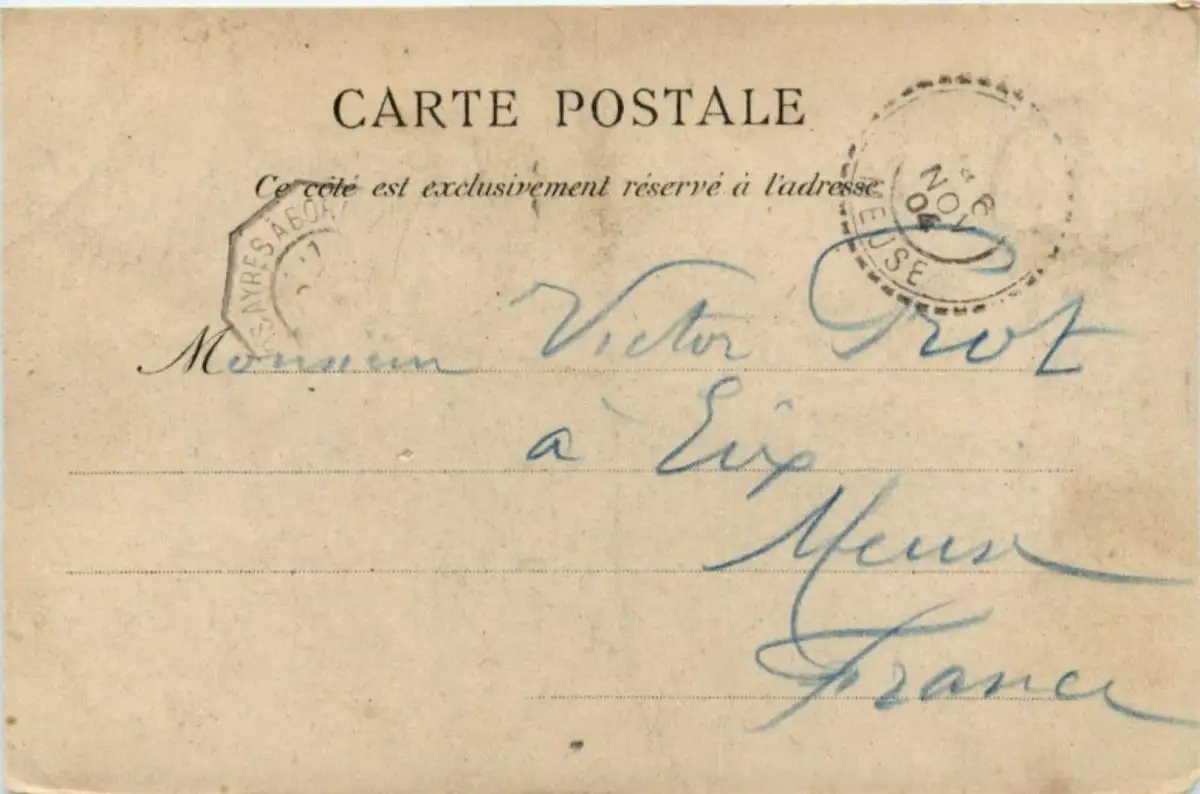 CARTE POSTALE
Ce côté est exclusivement réservé à l'adresse
6
NOV
04
MEUSE
AYRES À BOR
Monsieur Victor Prot
à Eix
Meuse
France